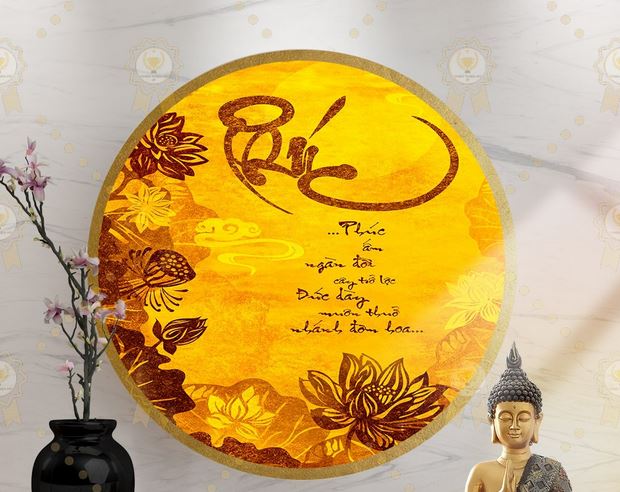 Phúc
...Phúc
ấm
ngàn đời
cây trổ lộc
Đức dầy
muôn thuở
nhánh đơm hoa...